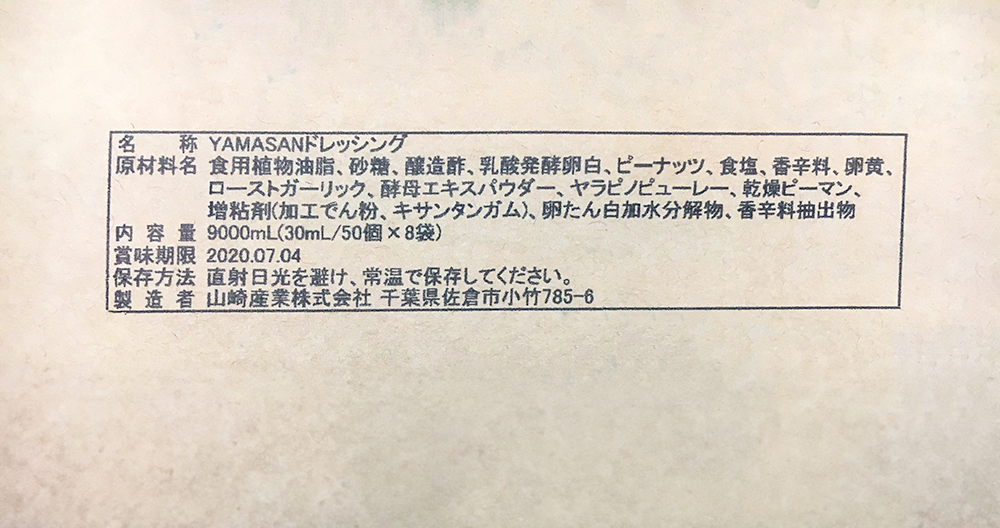 名　　称 YAMASANドレッシング
原材料名 食用植物油脂、砂糖、醸造酢、乳酸発酵卵白、ピーナッツ、食塩、香辛料、卵黄、
ローストガーリック、酵母エキスパウダー、ヤラピノピューレー、乾燥ピーマン、
増粘剤(加工でん粉、キサンタンガム)、卵たん白加水分解物、香辛料抽出物
内 容 量 9000mL(30mL/50個×8袋)
賞味期限 2020.07.04
保存方法 直射日光を避け、常温で保存してください。
製 造 者 山崎産業株式会社 千葉県佐倉市小竹785-6